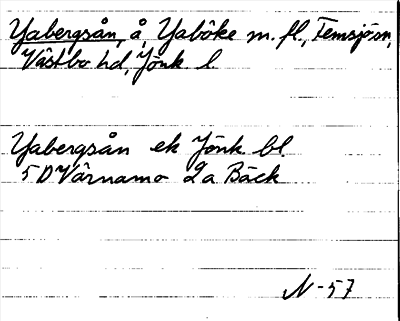 Yabergsån, å, Yaböke m. fl., Femsjö sn,
Västbo hd, Jönk. l.
Yabergsån ek Jönk. bl.
5 D Värnamo 2a Bäck
N-57